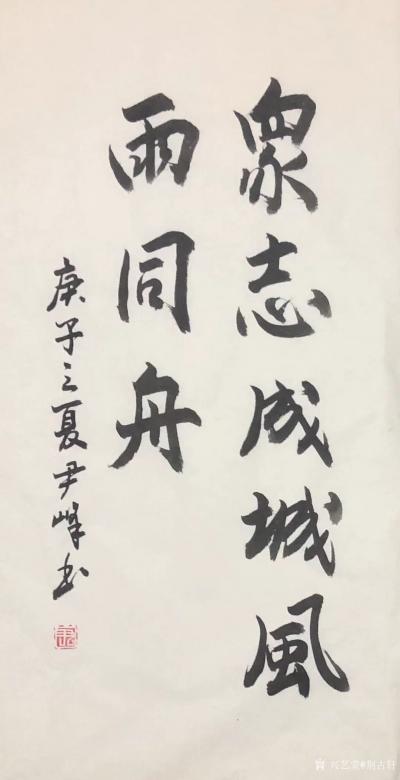 眾志成城風
雨同舟
庚子之夏尹峰书
兴艺堂@荆古轩